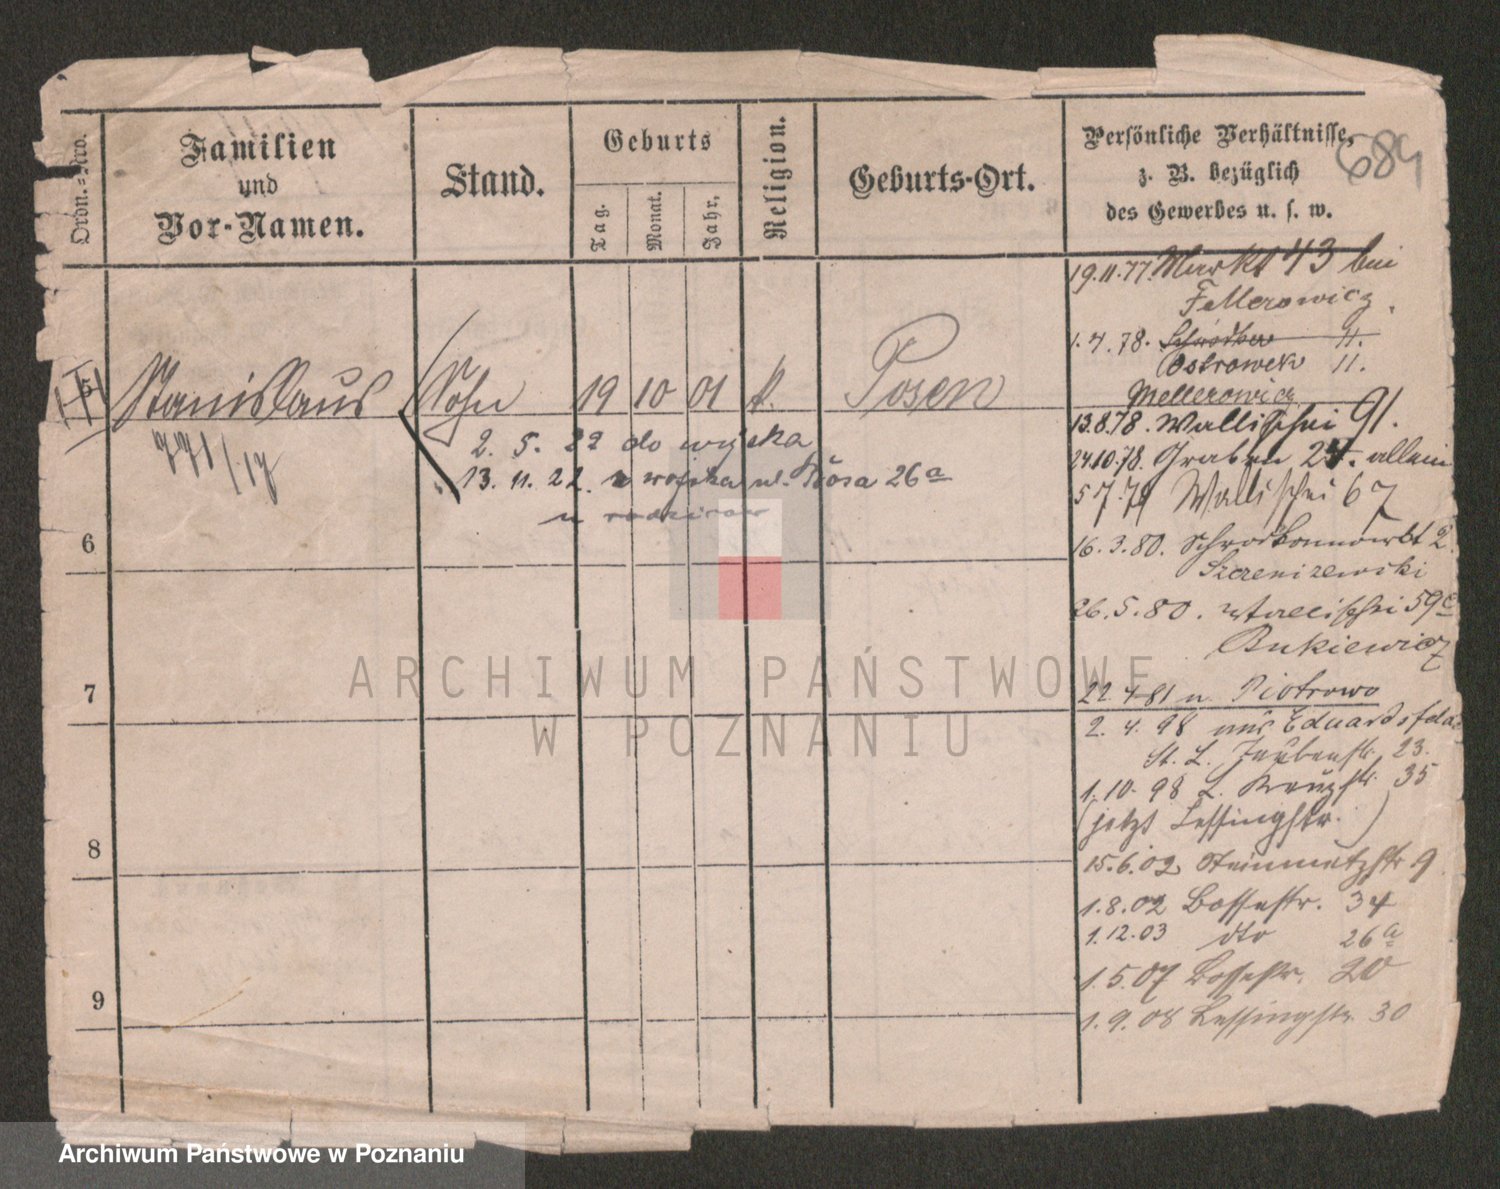 Ordn.-Nro.
Familien
und
Vor-Namen.
Stand.
Geburts
Tag.
Monat.
Jahr.
Religion.
Geburts-Ort.
Persönliche Verhältnisse,
z. B. bezüglich
des Gewerbes u. s. w.
684
5 Stanislaus Sohn 19 10 01 k. Posen
771/17
2. 5. 22 do wojska
13. 11. 22. z wojska ul. Kosa 26a
u rodziców
6
7
8
9
19.11.77. Markt 43 bei
Fellerowicz.
1.4.78. Schrodker 11.
Ostrowek 11.
Mellerowicz
13.8.78. Wallischei 91.
24.10.78. Graben 25. allein
5.7.79 Wallischei 67
16.3.80. Schrodkaermarkt 2.
26.5.80. Wallischei 59c
Bukiewicz
22.4.81 n. Piotrowo
2. 4. 98 aus Eduardsfelde
St. L. Taubenstr. 23.
1.10.98 L. Kreuzstr. 35
(jetzt Lessingstr.)
15.6.02 Steinmetzstr. 9
1.8.02 Bossestr. 34
1.12.03 dto 26a
1.5.07 Bossestr. 20
1.9.08 Lessingstr. 30
ARCHIWUM PAŃSTWOWE
W POZNANIU
Archiwum Państwowe w Poznaniu